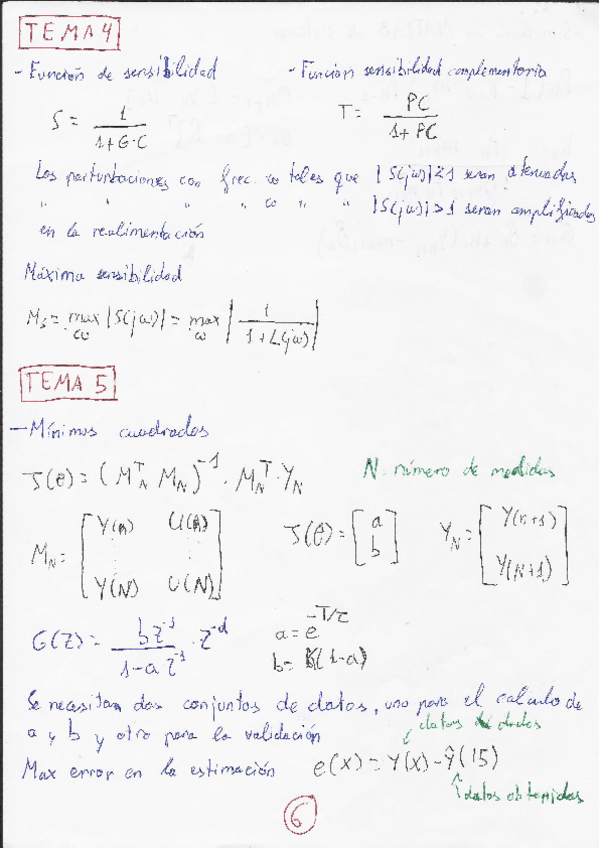 TEMA 4
- Función de sensibilidad
- Función sensibilidad complementaria
S = 1 / (1+G·C)
T = PC / (1+PC)
Las perturbaciones con frec. ω tales que |S(jω)|<1 seran atenuadas
" " " " ω " " |S(jω)|>1 seran amplificadas
en la realimentación
Máxima sensibilidad
Ms = max_ω |S(jω)| = max_ω | 1 / (1+L(jω)) |
TEMA 5
- Mínimos cuadrados
J(θ) = (M_N^T M_N)^-1 · M_N^T · Y_N
N - número de medidas
M_N = [ Y(n) U(n) ⋮ ⋮ Y(N) U(N) ]
J(θ) = [ a b ]
Y_N = [ Y(n+1) ⋮ Y(N+1) ]
G(z) = bz^-1 / (1-a z^-1) · z^-d
a = e^-T/τ
b = K(1-a)
Se necesitan dos conjuntos de datos, uno para el calculo de
a y b y otro para la validación
datos dados
Max error en la estimación
e(x) = Y(x) - Ŷ(15)
datos obtenidos
6